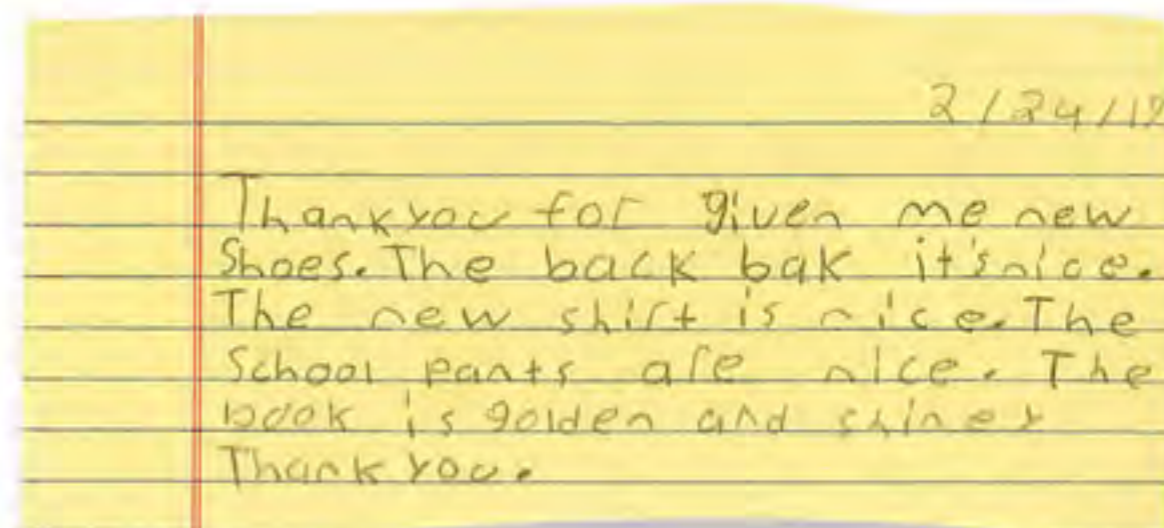 2/24/19
Thank you for given me new
Shoes. The back bak it's nice.
The new shirt is nice. The
School pants are nice. The
book is golden and shiney
Thank you.